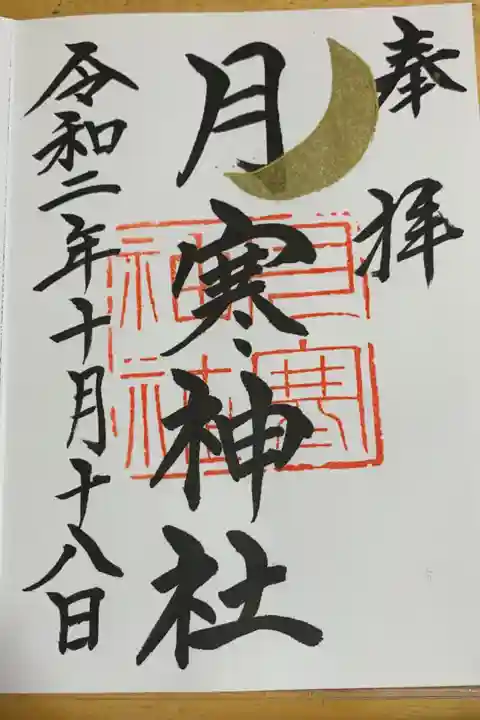 奉拝
月寒神社
月寒神社
令和二年十月十八日